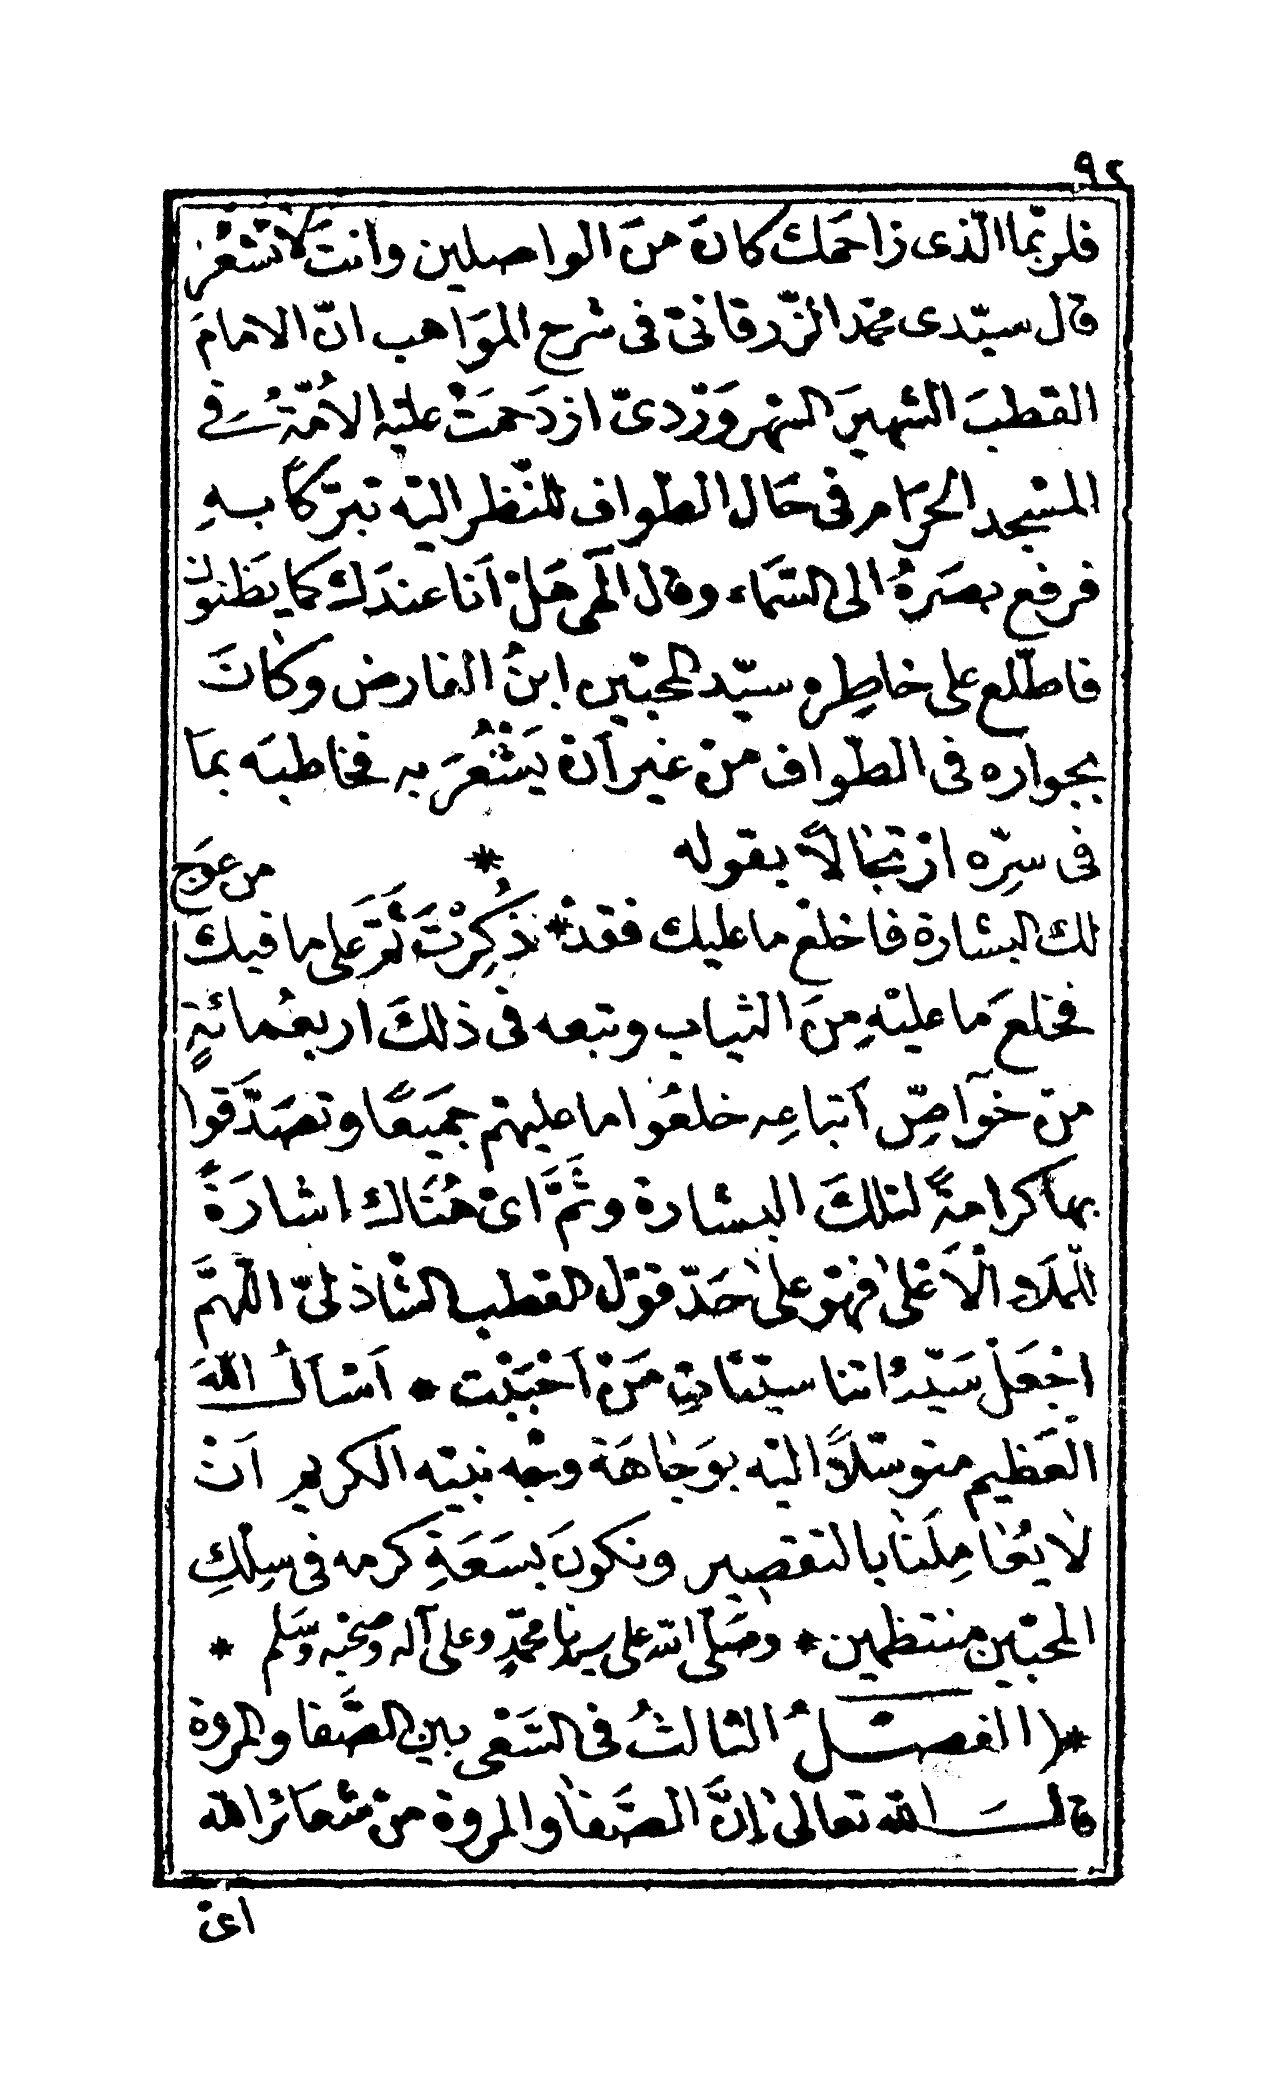 ٩٢
فلربّما الّذى زاحَمك كانَ منَ الواصلين وأنتَ لاتَشْعُرُ
قال سيّدى محمّد الزّرقانىّ فى شرح المَوَاهب انّ الامامَ
القطبَ الشهيرَ السُّهروَرْدىّ ازدَحمَتْ عليْه الاُمّةُ فى
المسْجد الحرَام فى حَال الطواف للنّظر اليْه تبرّكًا بهِ
فرفع بصَرهُ الى السّمَاء وقال الٓهى هَلْ اَنا عندَك كما يظنّون
فاطّلع على خاطِره سيّد المحبّين ابنُ الفارض وكانَ
بجواره فى الطواف منْ غير اَنْ يَشْعُرَ به فخاطبَه بمَا
فى سِرّه ارْتجَالاً بقوله *
من عوج
لك البشارة فاخلعْ ما عليك فقدْ * ذُكِرْتَ ثَمَّ على ما فيكَ
فخلعَ ما عليْهِ مِنَ الثياب وتبعه فى ذلكَ اربعُمائةٍ
منْ خوَآصِّ اَتباعِه خلعُوا ما عليهمْ جميَعًا وتصَدَّقوا
بها كرامةً لتلكَ البشارة وثَمَّ اىْ هُنَاك اشارَةً
للمَلاء الْاَعْلىٰ فهْو علىٰ حَدّ قوْل القطب الشّاذلىّ اللّهمَّ
اجْعَلْ سَيّئاتنا سيّئاتِ مَنْ اَحْبَبْت * اَسْاَلُ اللّهَ
العَظيم متوسّلاً اليْه بوَجَاهَة وجْه نبيّه الكريم اَنْ
لا يُعَامِلَنَا بالتقصير ونكونَ بسَعَةِ كرمه فى سِلكِ
المحبّين منتظمين * وصَلّى اللّه على سيدنا محمّدٍ وعلى آله وصحْبه وسَلم *
*( الفصْلُ الثالثُ فى السّعْى بين الصَّفا والمروة
قالَ اللّه تعالىٰ إنَّ الصَّفا والمروة منْ شعَائر اللّه
اىْ